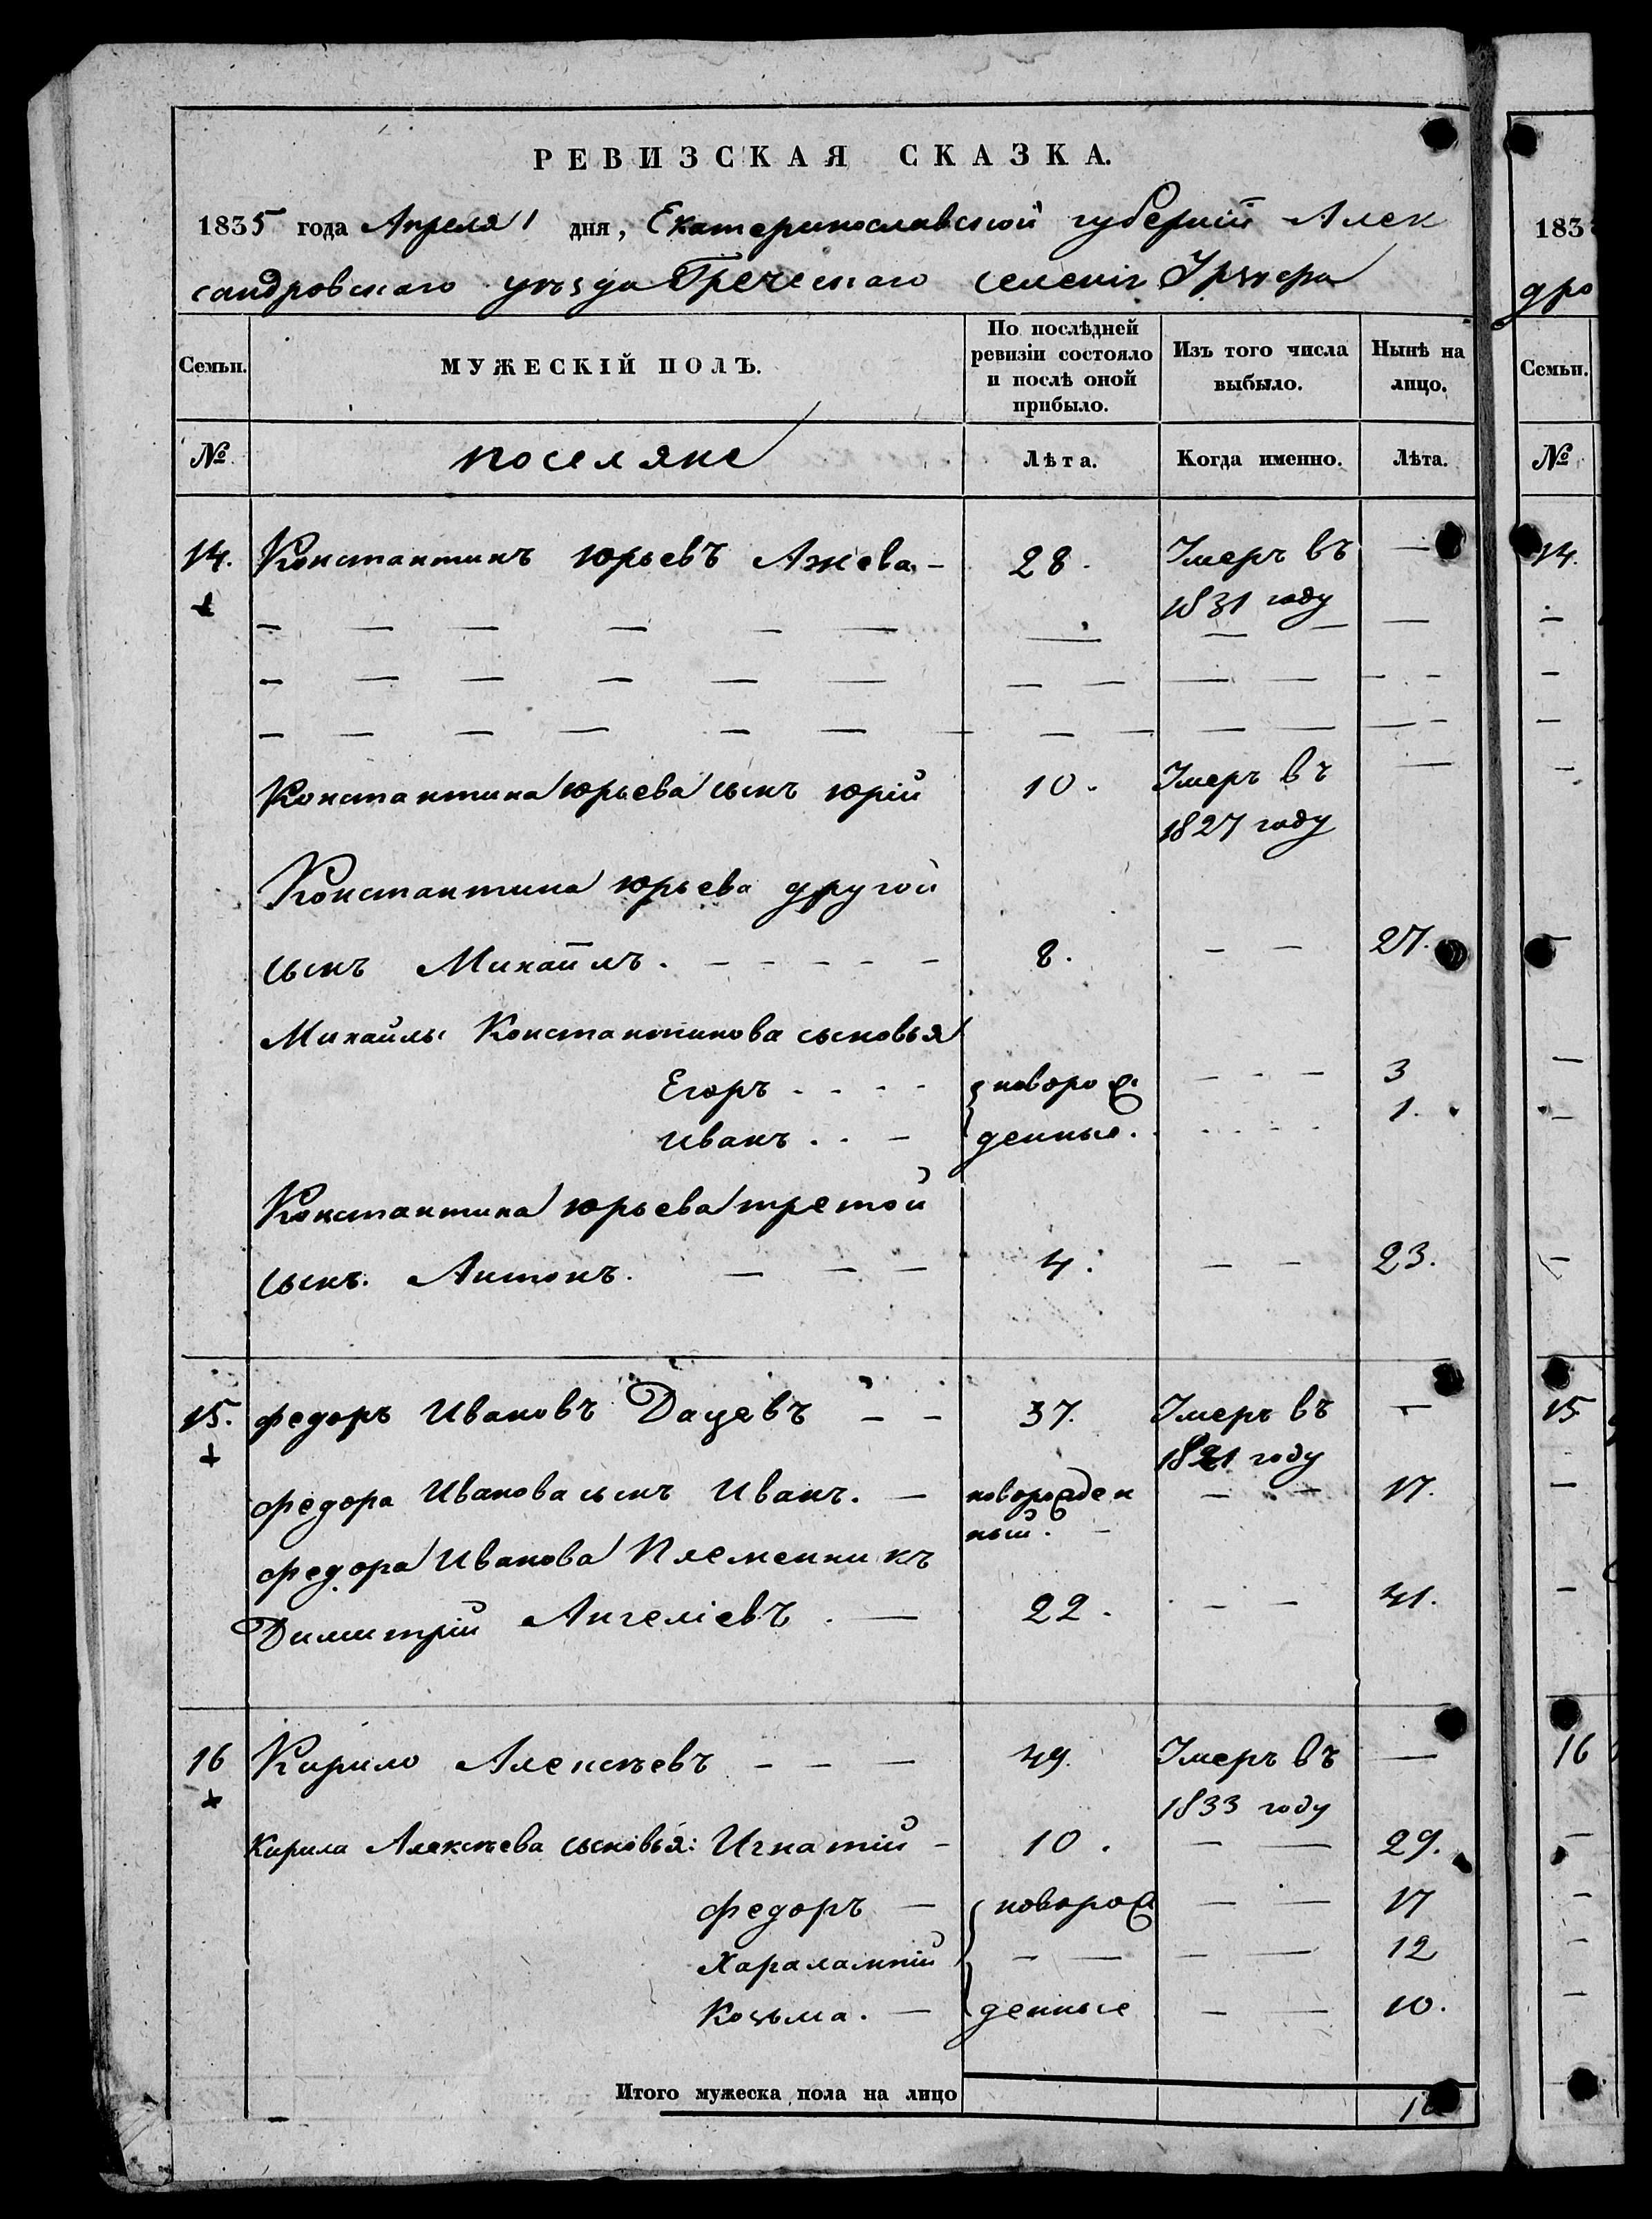 РЕВИЗСКАЯ СКАЗКА.
1835 года Апреля 1 дня, Екатеринославской губерніи Алек
сандровскаго уѣзда Греческаго селенія
Семьи. МУЖЕСКІЙ ПОЛЪ. По послѣдней ревизіи состояло и послѣ оной прибыло. Изъ того числа выбыло. Нынѣ на лицо.
№ поселяне Лѣта. Когда именно. Лѣта.
14. Константинъ Юрьевъ Ажева - 28. Умеръ въ —
1831 году
Константина Юрьева сынъ Юрій 10. Умеръ въ —
1827 году
Константина Юрьева другой
сынъ Михаилъ. - - - - - 8. - - 27.
Михайлы Константинова сыновья
Егоръ - - - - новорож - - - 3
Иванъ . . - денные. - - - - 1.
Константина Юрьева третой
сынъ. Антонъ. — — — 4. — — 23.
15. Федоръ Ивановъ Дацевъ — — 37. Умеръ въ —
1821 году
Федора Иванова сынъ Иванъ. — новорожден — — 17.
ный. -
Федора Иванова племенникъ
Димитрій Ангеліевъ. — 22. - — 41.
16 Кирило Алексѣевъ - - — 49. Умеръ въ —
1833 году
Кирила Алексѣева сыновья: Игнатій - 10. — — 29.
Федоръ — новорож — — 17
Харалампій — — — — 12
Козьма. — денные — — 10.
Итого мужеска пола на лицо
183
дро
Семьи.
№
14.
15
16